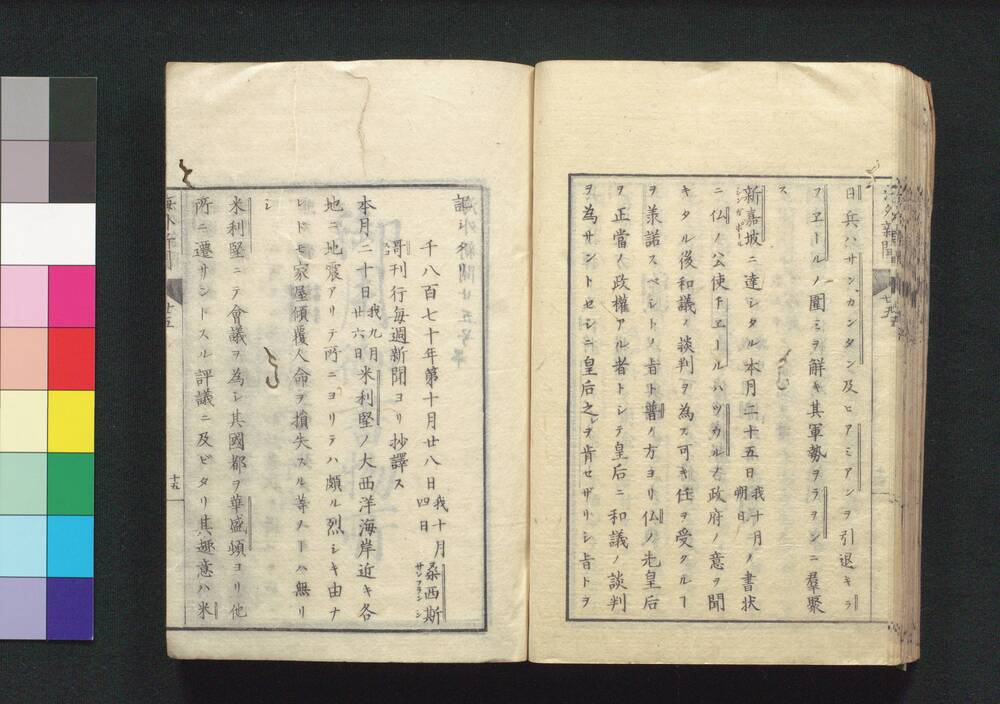 日兵ハサン、カンタン及ヒロアミアンヲ引退キラ
フヱールノ圍ミヲ解キ其軍勢ヲラヲンニ羣聚
ス
新嘉坡ニ達シタル本月二十五日我十月朔日ノ書状
シンガポール
ニ仏ノ公使チヱールハツウル府ノ政府ノ意ヲ聞
キタル後和議ノ談判ヲ為ス可キ任ヲ受クルヿ
ヲ羕諾スベシトノ㫖ト普ノ方ヨリ仏ノ先皇后
ヲ正當ノ政權アル者トシテ皇后ニ和議ノ談判
ヲ為サントセシニ皇后之ヲ肯セザリシ㫖トヲ
海外新聞
廿五
海外新聞廿五号
千八百七十年第十月廿八日我十月四日桑西斯
サンフランシシ
哥刊行毎週新聞ヨリ抄譯ス
本月二十日我九月廿六日米利堅ノ大西洋海岸近キ各
地ニ地震アリテ所ニヨリテハ頗ル烈シキ由ナ
レドモ家屋傾覆人命ヲ損失スル等ノヿハ無リ
シ
米利堅ニテ會議ヲ為シ其國都ヲ華盛頓ヨリ他
所ニ遷サンドスル評議ニ及ビタリ其趣意ハ米
海外新聞
廿五
十五